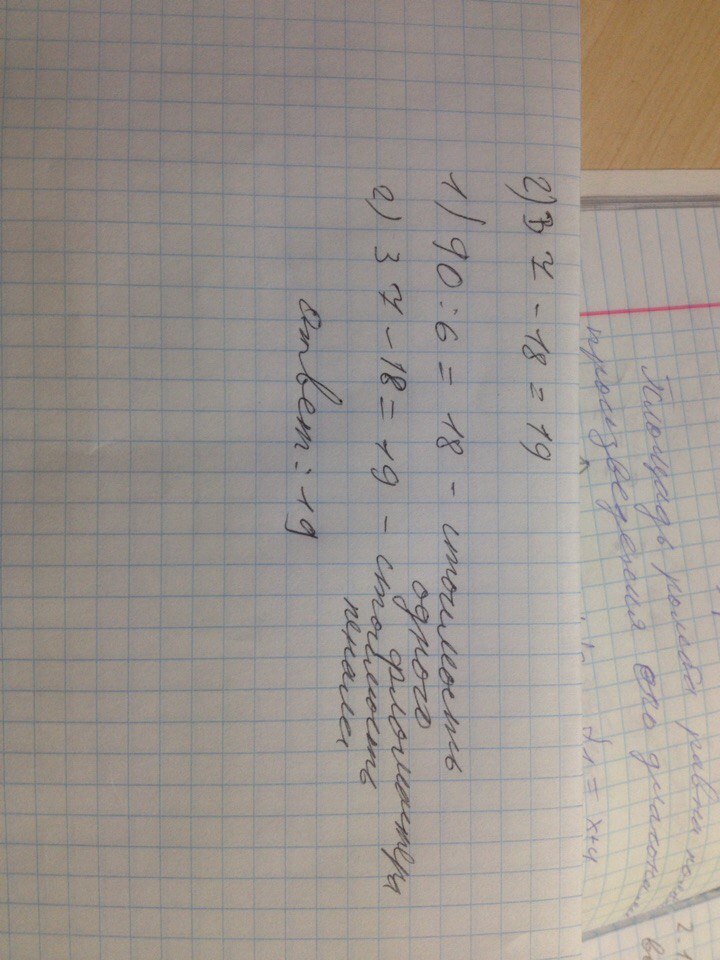 2) 37 - 18 = 19
1) 90 : 6 = 18 - стоимость
одного
фломастера
2) 37 - 18 = 19 - стоимость
пенала
Ответ: 19
Площадь ромба равна
произведения его
d1 = x+4